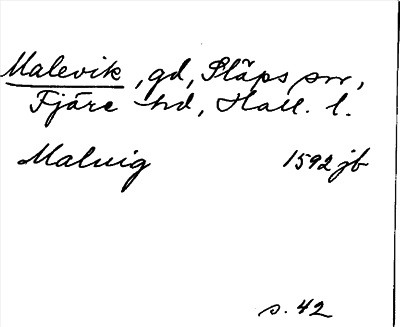 Malevik, gd, Släps sn,
Fjäre hd, Hall. l.
Malvig 1592 jb
s. 42